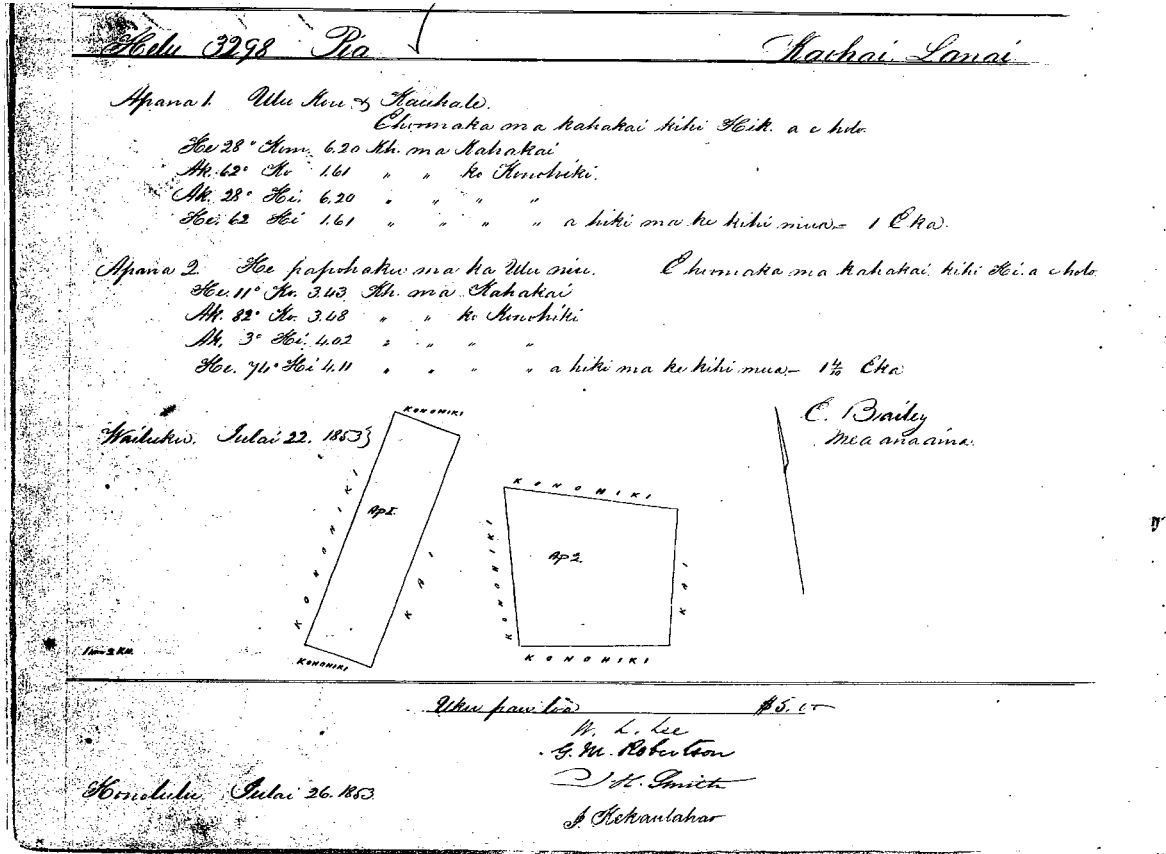 Helu 3298 Pia Kaohai Lanai
Apana 1. Ulu Kou & Kauhale.
E hoomaka ma kahakai kihi Hik. a e holo
He 28° Kom. 6.20 Kh. ma Kahakai
Ak. 62° Ko 1.61 " " ko Konohiki.
Ak. 28° Hi. 6.20 " " " "
He. 62 Hi 1.61 " " " " a hiki ma ke kihi mua = 1 Eka.
Apana 2. He papohaku ma ka Ulu niu. E hoomaka ma kahakai kihi Hi. a e holo
He. 11° Ko. 3.43 Kh. ma Kahakai
Ak. 82° Ko. 3.48 " " ko Konohiki
Ak. 3° Hi. 4.02 " " " "
He. 74° Hi 4.11 " " " " a hiki ma ke kihi mua = 1 4/10 Eka
E. Bailey
Mea ana aina.
Wailuku. Iulai 22. 1853}
KONOHIKI
KONOHIKI
Ap 1.
KAI
KONOHIKI
KONOHIKI
KONOHIKI
Ap 2.
KAI
KONOHIKI
Uku pau loa $5.00
W. L. Lee
G. M. Robertson
J. H. Smith
J. Kekaulahao
Honolulu Iulai 26. 1853